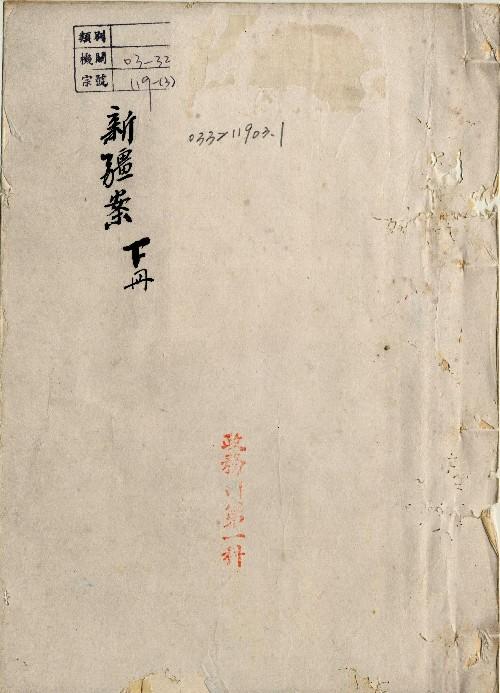 類別
機關 03-32
宗號 119-(3)
03321903.1
新疆案 下冊
政務司第一科